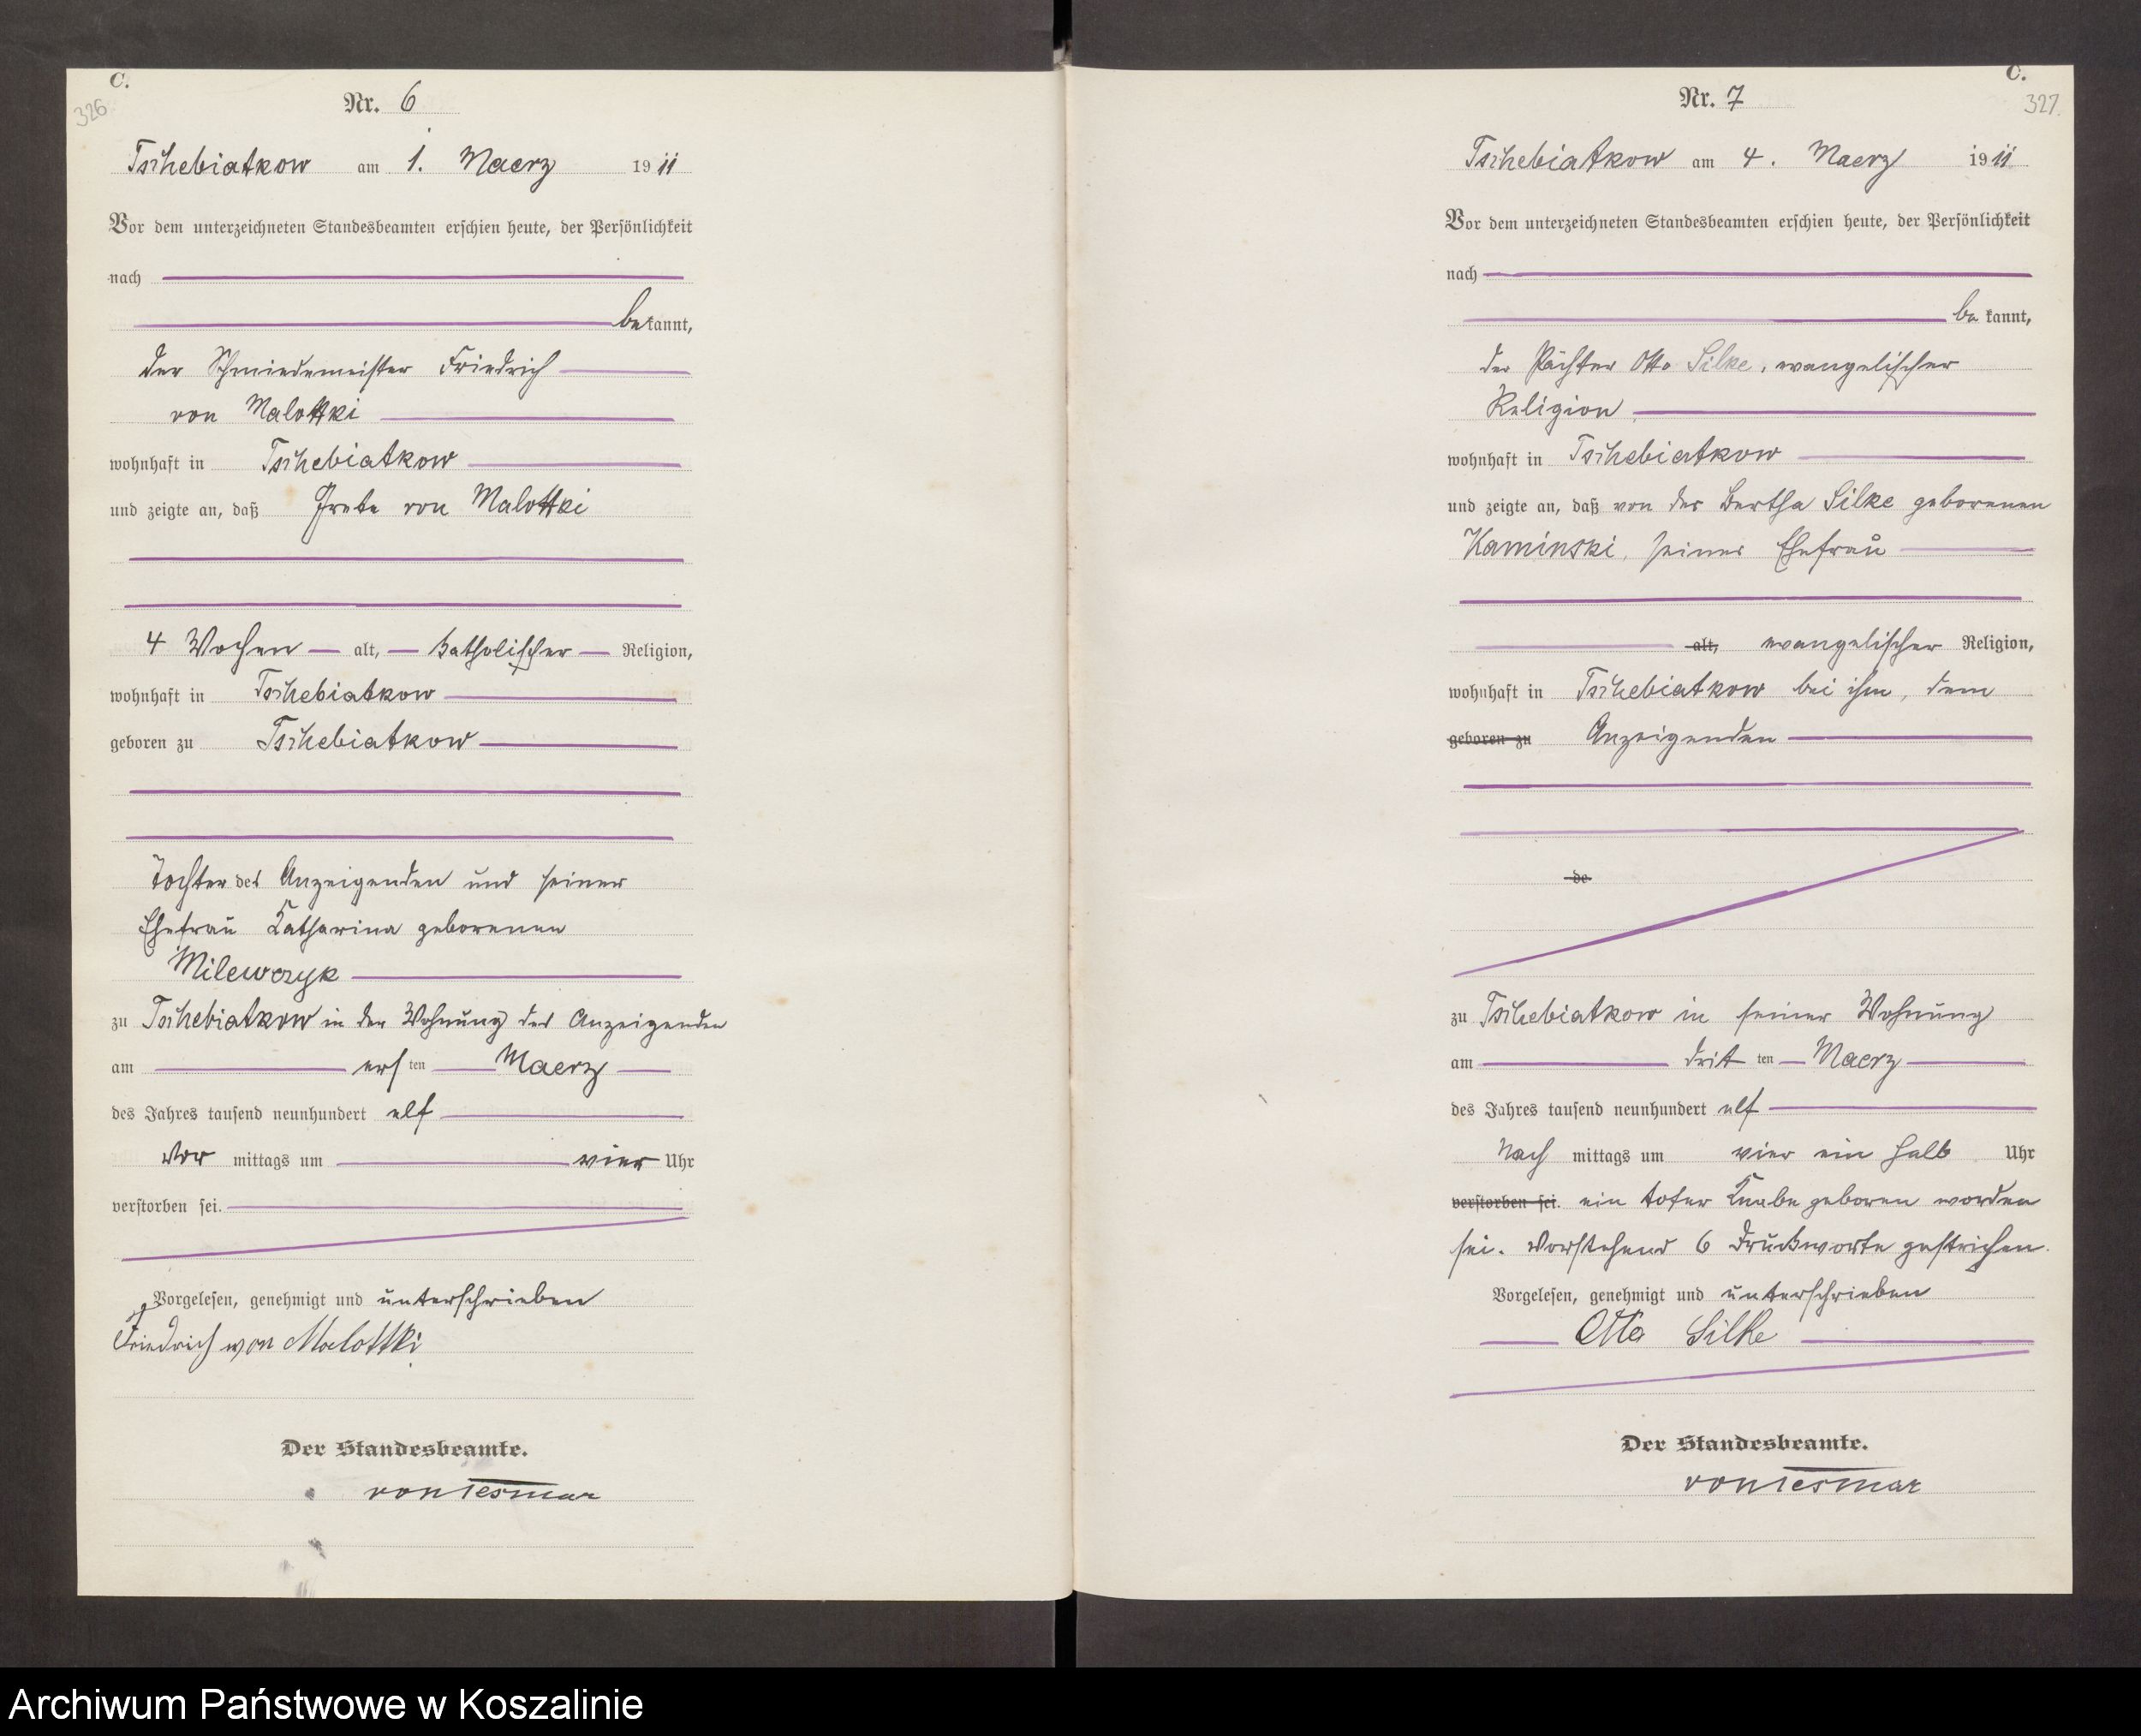 C.
326
Nr. 6
Tschebiatkow am 1. Maerz 1911
Vor dem unterzeichneten Standesbeamten erschien heute, der Persönlichkeit
nach
bekannt,
der Schmiedemeister Friedrich
von Malottki
wohnhaft in Tschebiatkow
und zeigte an, daß Grete von Malottki
4 Wochen alt, katholischer Religion,
wohnhaft in Tschebiatkow
geboren zu Tschebiatkow
Tochter des Anzeigenden und seiner
Ehefrau Katharina geborenen
Milewczyk
zu Tschebiatkow in der Wohnung des Anzeigenden
am ersten Maerz
des Jahres tausend neunhundert elf
Vor mittags um vier Uhr
verstorben sei.
Vorgelesen, genehmigt und unterschrieben
Friedrich von Malottki
Der Standesbeamte.
von Tesmar
C.
327.
Nr. 7
Tschebiatkow am 4. Maerz 1911
Vor dem unterzeichneten Standesbeamten erschien heute, der Persönlichkeit
nach
bekannt,
der Pächter Otto Silke, evangelischer
Religion
wohnhaft in Tschebiatkow
und zeigte an, daß von der Bertha Silke geborenen
Kaminski, seiner Ehefrau
alt, evangelischer Religion,
wohnhaft in Tschebiatkow bei ihm, dem
geboren zu Anzeigenden
de
zu Tschebiatkow in seiner Wohnung
am dritten Maerz
des Jahres tausend neunhundert elf
Nach mittags um vier ein halb Uhr
verstorben sei. ein toter Knabe geboren worden
sei. Vorstehend 6 Druckworte gestrichen.
Vorgelesen, genehmigt und unterschrieben
Otto Silke
Der Standesbeamte.
von Tesmar
Archiwum Państwowe w Koszalinie